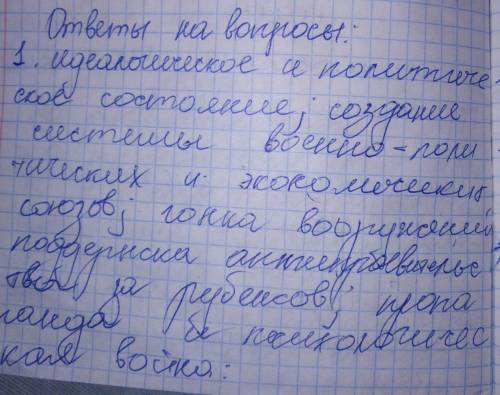 Ответы на вопросы:
1. идеалогическое и политиче
ское состояние; создание
системы военно-поли
тических и экономических
союзов; гонка вооружений
поддержка антиправительс
тва за рубежов; пропа
ганда & психологичес
кая война: